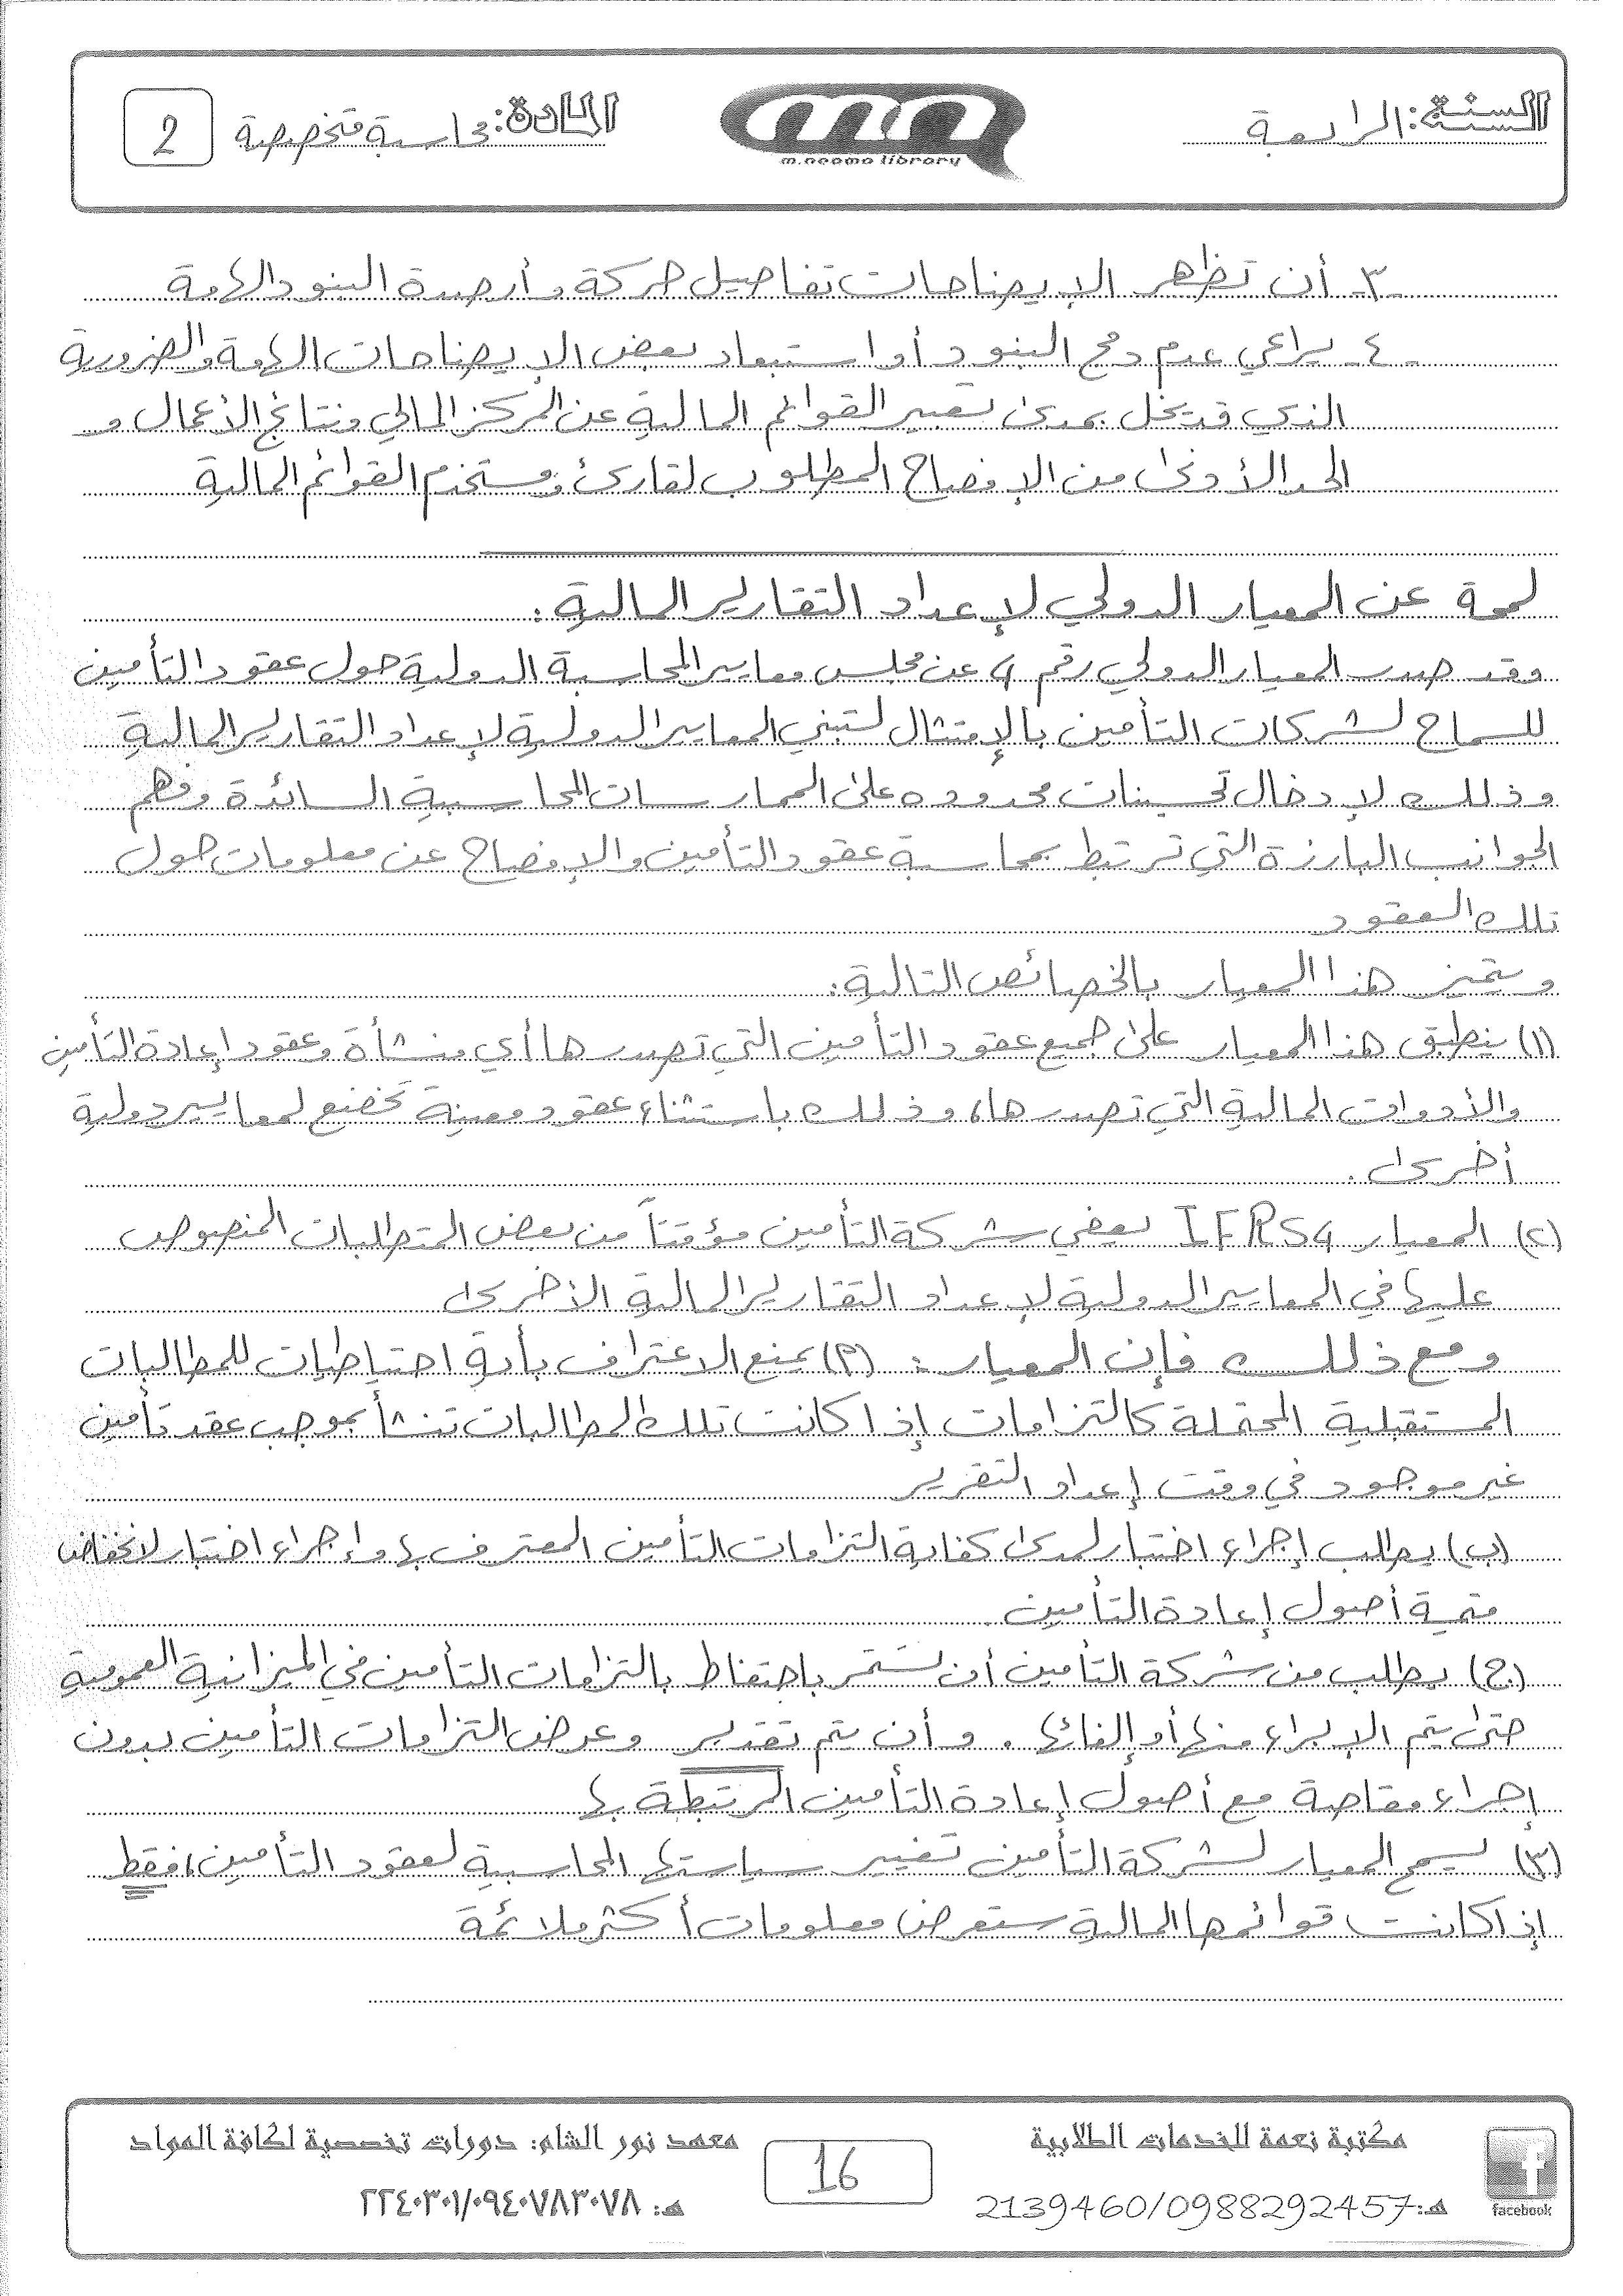 السنة: الرابعة
m.neama library
المادة: محاسبة متخصصة
2
٣- أن تظهر الإيضاحات تفاصيل حركة وأرصدة البنود الهامة
٤- يراعي عدم دمج البنود أو استبعاد بعض الإيضاحات الهامة والضرورية
الذي قد يخل بمدى تعبير القوائم المالية عن المركز المالي ونتائج الأعمال و
الحد الأدنى من الإفصاح المطلوب لقارئ ومستخدم القوائم المالية
لمحة عن المعيار الدولي لإعداد التقارير المالية:
وقد صدر المعيار الدولي رقم 4 عن مجلس معايير المحاسبة الدولية حول عقود التأمين
للسماح لشركات التأمين بالإمتثال لتبني المعايير الدولية لإعداد التقارير المالية
وذلك لإدخال تحسينات محدوده على الممارسات المحاسبية السائدة وفهم
الجوانب البارزة التي ترتبط بمحاسبة عقود التأمين والإفصاح عن معلومات حول
تلك العقود
ويتميز هذا المعيار بالخصائص التالية:
(١) ينطبق هذا المعيار على جميع عقود التأمين التي تصدرها أي منشأة وعقود إعادة التأمين
والأدوات المالية التي تصدرها، وذلك باستثناء عقود معينة تخضع لمعايير دولية
أخرى.
(٢) المعيار IFRS4 يعفي شركة التأمين مؤقتاً من بعض المتطلبات المنصوص
عليها في المعايير الدولية لإعداد التقارير المالية الأخرى
ومع ذلك فإن المعيار: (٢) يمنع الاعتراف بأية احتياطيات للمطالبات
المستقبلية المحتملة كالتزامات إذا كانت تلك المطالبات تنشأ بموجب عقد تأمين
غير موجود في وقت إعداد التقرير
(ب) يطلب إجراء اختبار لمدى كفاية التزامات التأمين المعترف بها وإجراء اختبار لانخفاض
قيمة أصول إعادة التأمين
(ج) يطلب من شركة التأمين أن تستمر باحتفاظ بالتزامات التأمين في الميزانية العمومية
حتى يتم الإبراء منها أو إلغائها. وأن يتم تقدير وعرض التزامات التأمين بدون
إجراء مقاصة مع أصول إعادة التأمين المرتبطة بها
(٣) يسمح المعيار لشركة التأمين تغيير سياستها المحاسبية لعقود التأمين، فقط
إذا كانت قوائمها المالية ستعرض معلومات أكثر ملائمة
مكتبة نعمة للخدمات الطلابية
هـ: 2139460/0988292457
facebook
16
معهد نور الشام: دورات تخصصية لكافة المواد
هـ: ٢٢٤٠٣٠١/٠٩٤٠٧٨٣٠٧٨